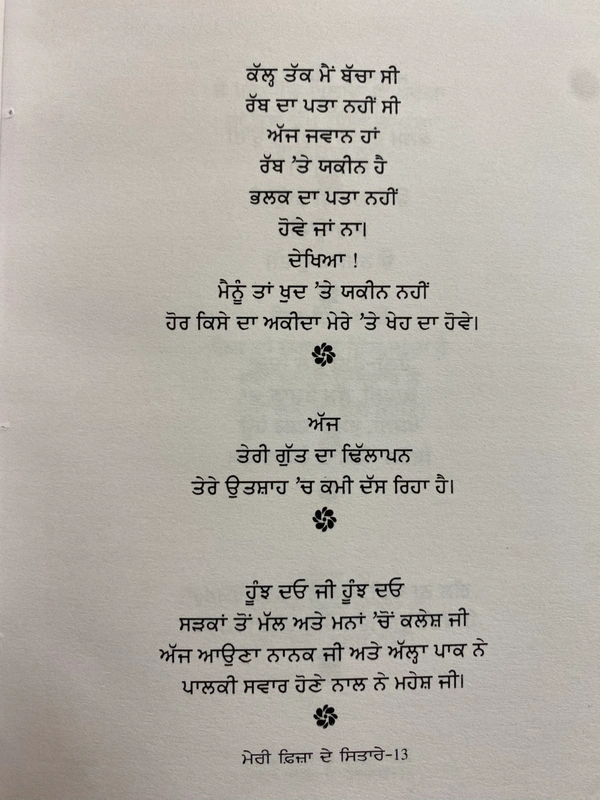 ਕੱਲ੍ਹ ਤੱਕ ਮੈਂ ਬੱਚਾ ਸੀ
ਰੱਬ ਦਾ ਪਤਾ ਨਹੀਂ ਸੀ
ਅੱਜ ਜਵਾਨ ਹਾਂ
ਰੱਬ ’ਤੇ ਯਕੀਨ ਹੈ
ਭਲਕ ਦਾ ਪਤਾ ਨਹੀਂ
ਹੋਵੇ ਜਾਂ ਨਾ।
ਦੇਖਿਆ !
ਮੈਨੂੰ ਤਾਂ ਖੁਦ ’ਤੇ ਯਕੀਨ ਨਹੀਂ
ਹੋਰ ਕਿਸੇ ਦਾ ਅਕੀਦਾ ਮੇਰੇ ’ਤੇ ਖੇਹ ਦਾ ਹੋਵੇ।
ਅੱਜ
ਤੇਰੀ ਗੁੱਤ ਦਾ ਢਿੱਲਾਪਨ
ਤੇਰੇ ਉਤਸ਼ਾਹ ’ਚ ਕਮੀ ਦੱਸ ਰਿਹਾ ਹੈ।
ਹੂੰਝ ਦਓ ਜੀ ਹੂੰਝ ਦਓ
ਸੜਕਾਂ ਤੋਂ ਮੱਲ ਅਤੇ ਮਨਾਂ ’ਚੋਂ ਕਲੇਸ਼ ਜੀ
ਅੱਜ ਆਉਣਾ ਨਾਨਕ ਜੀ ਅਤੇ ਅੱਲ੍ਹਾ ਪਾਕ ਨੇ
ਪਾਲਕੀ ਸਵਾਰ ਹੋਣੇ ਨਾਲ ਨੇ ਮਹੇਸ਼ ਜੀ।
ਮੇਰੀ ਫ਼ਿਜ਼ਾ ਦੇ ਸਿਤਾਰੇ-13